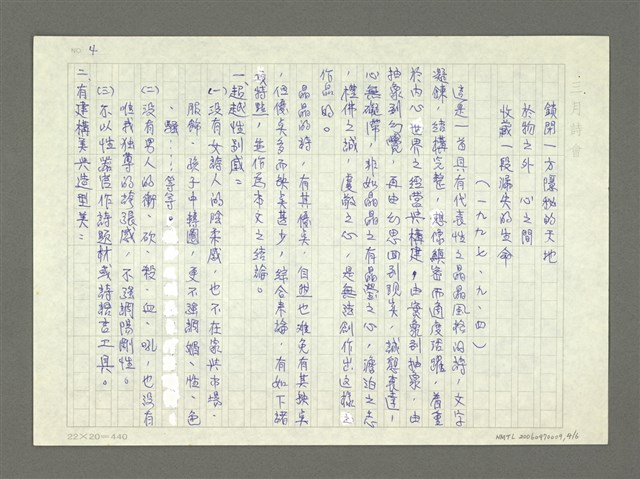 NO. 4
鎖閉一方隱秘的天地
於物之外 心之間
收藏一段漏失的生命
（一九九七、九、四）
這是一首具有代表性之晶晶風格的詩，文字
凝鍊，結構完整，想像縝密而適度活躍，着重
於內心世界之經營與構建，由實象到抽象，由
抽象到幻覺，再由幻思回到現實，誠想表達，
心無礙滯，非如晶晶之有晶瑩之心，澹泊之志
，禮佛之誠，虔敬之心，是無法創作出這樣之
作品的。
晶晶的詩，有其優美，自然也難免有其缺失
，但優多而缺失甚少，綜合來論，有如下諸
項特點，並作為本文之結論。
一、超越性別感：
（一）沒有女詩人的陰柔感，也不在家與市場、
服飾、孩子中轉圈，更不強調媚、性、色
、騷……等等。
（二）沒有男人的衝、砍、殺、血、吼，也沒有
唯我獨尊的誇張感，不強調陽剛性。
（三）不以性器官作詩題材或詩語言工具。
二、有建構美與造型美：
22×20＝440
NMTL 20060970009, 4/6